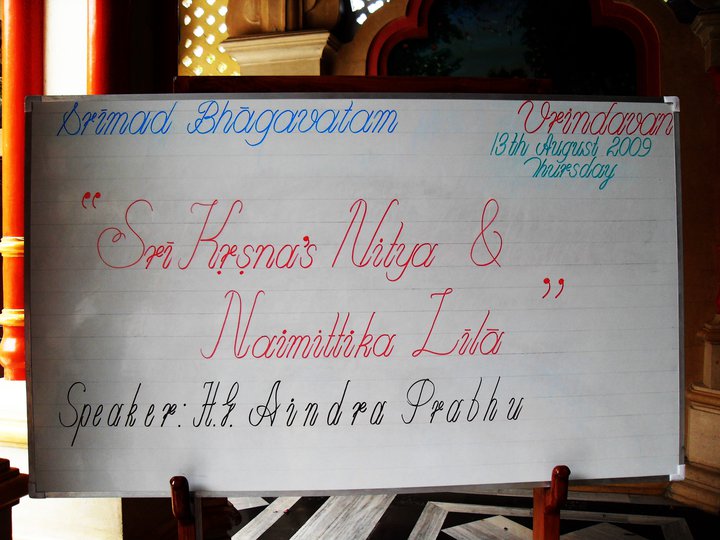 Srīmad Bhāgavatam
Vrindavan
13th August 2009
Thursday
“Srī Kṛṣna's Nitya &
Naimittika Līlā”
Speaker: H.G. Aindra Prabhu